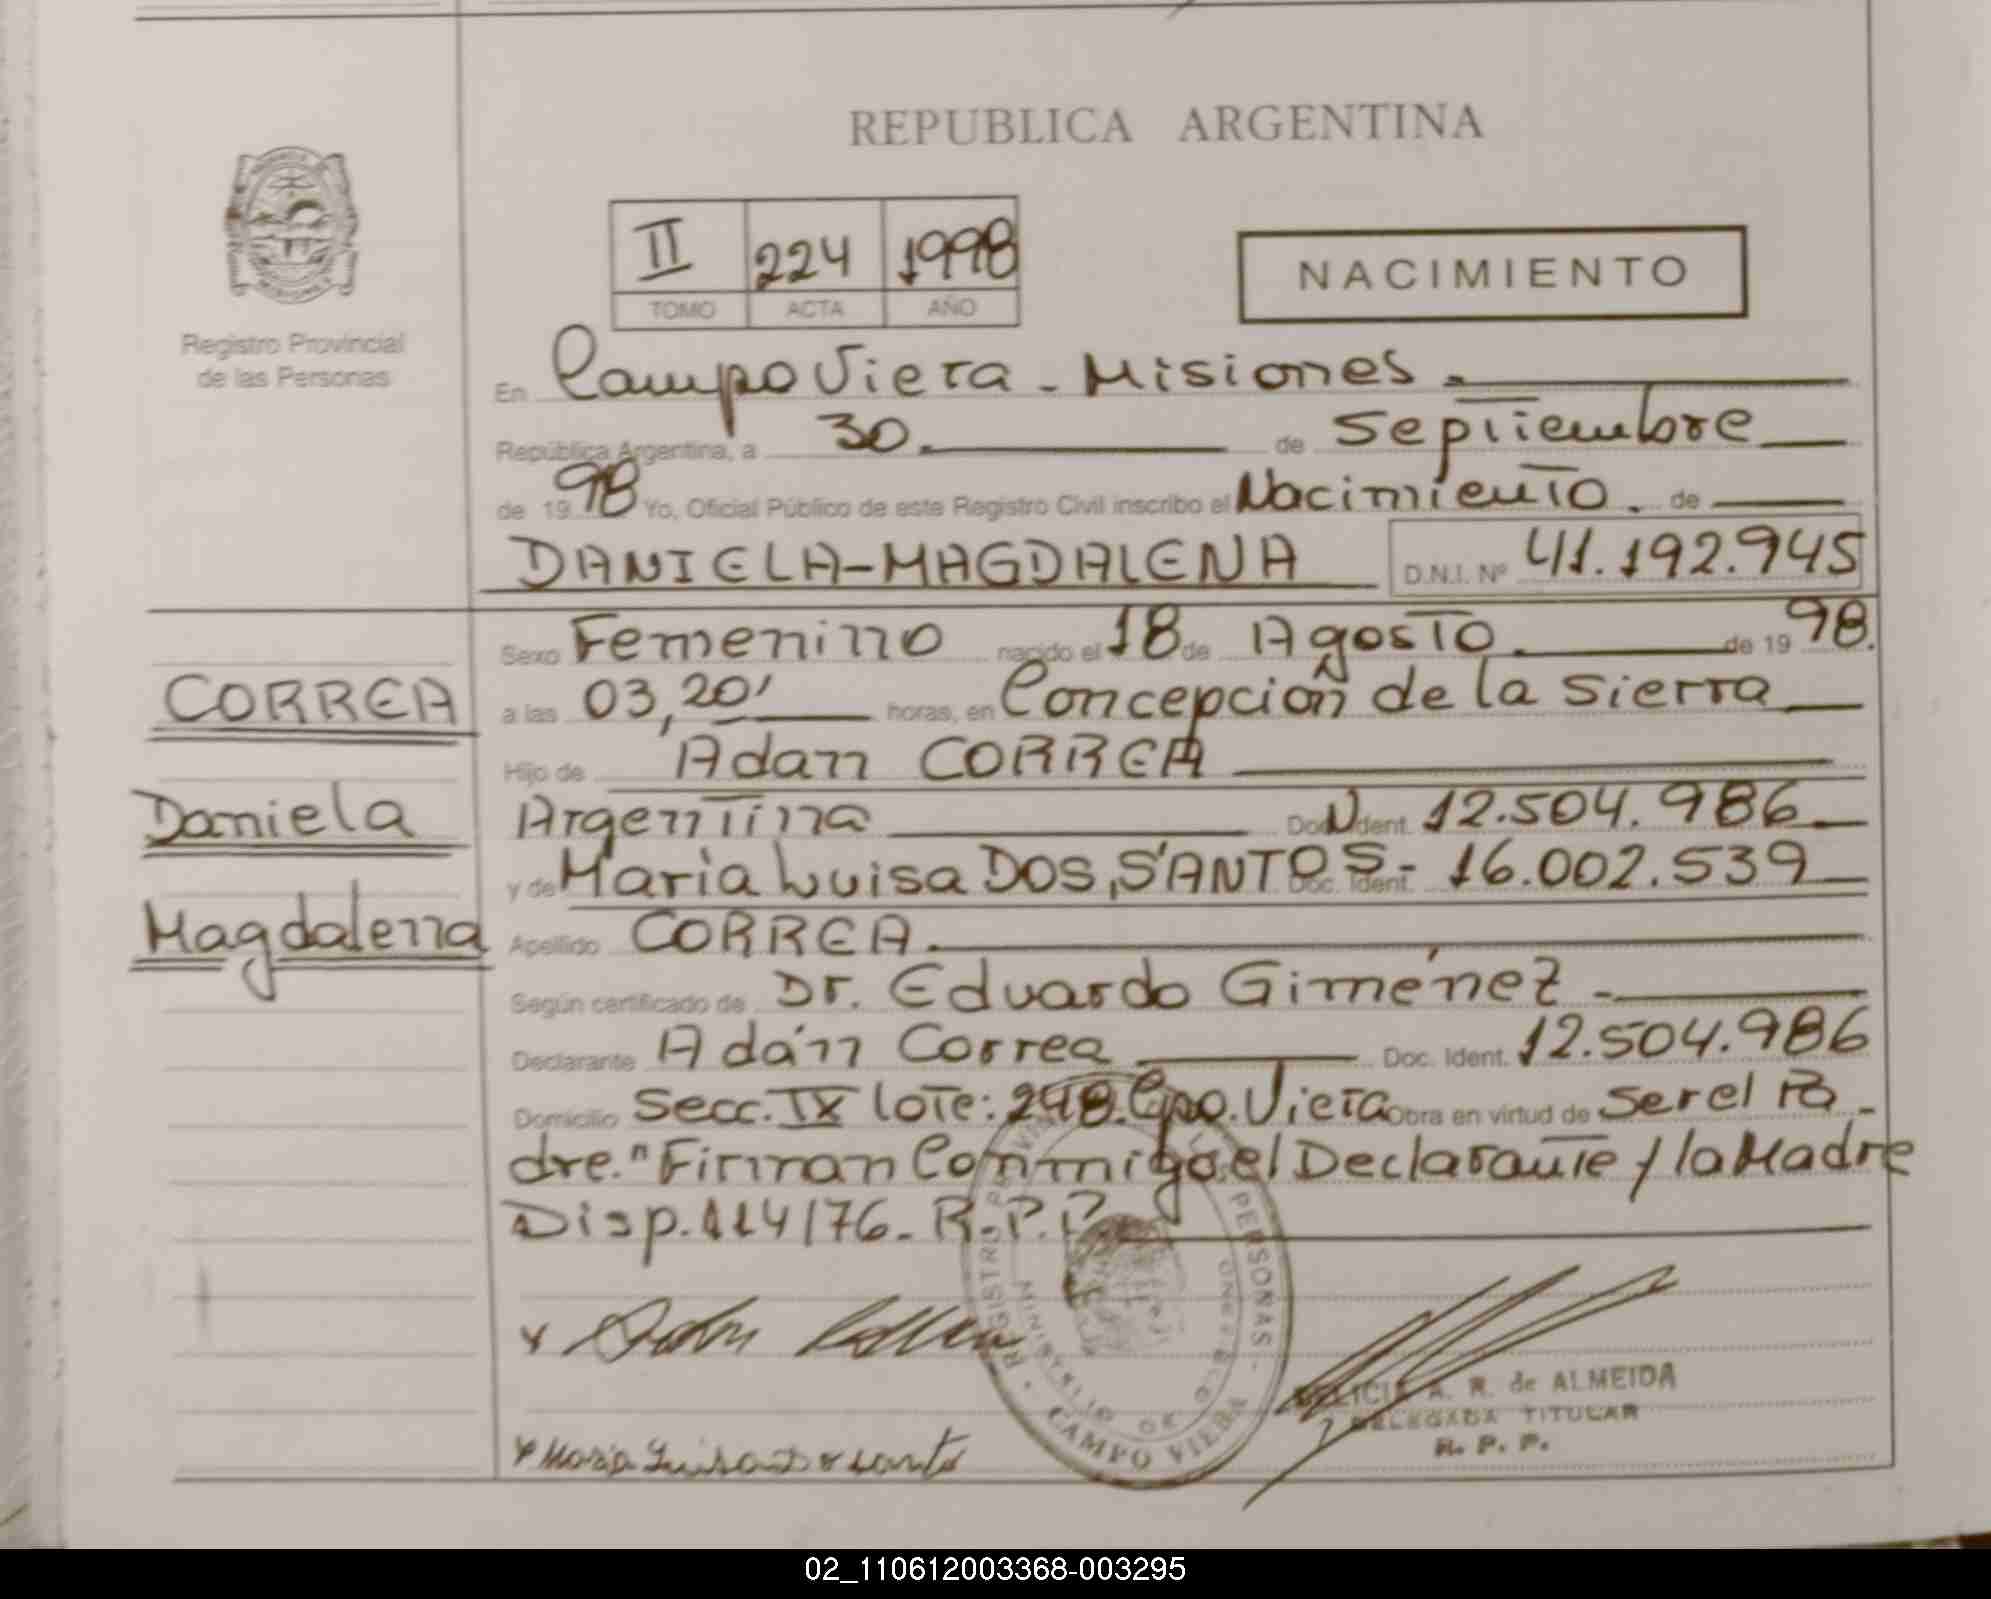 REPUBLICA ARGENTINA
II 224 1998
TOMO ACTA AÑO
NACIMIENTO
Registro Provincial
de las Personas
En Campo Viera - Misiones.
República Argentina, a 30. de Septiembre
de 1998 Yo, Oficial Público de este Registro Civil inscribo el Nacimiento. de
DANIELA-MAGDALENA D.N.I. Nº 41.192.945
Sexo Femenino nacido el 18 de Agosto. de 1998.
CORREA
a las 03,20' horas, en Concepción de la Sierra
Hijo de Adan CORREA
Daniela
Argentina Doc. Ident. 12.504.986
y de Maria Luisa DOS SANTOS - Doc. Ident. 16.002.539
Magdalena
Apellido CORREA.
Según certificado de Dr. Eduardo Giménez -
Declarante Adán Correa Doc. Ident. 12.504.986
Domicilio Secc. IX lote: 248. Cpo. Viera Obra en virtud de ser el Pa-
dre." Firman Conmigo el Declarante y la Madre
Disp. 114/76. R.P.P.
REGISTRO PROVINCIAL DE LAS PERSONAS
MINISTERIO DE GOBIERNO
CAMPO VIERA
Maria Luisa Dos Santos
A. R. de ALMEIDA
DELEGADA TITULAR
R. P. P.
02_110612003368-003295